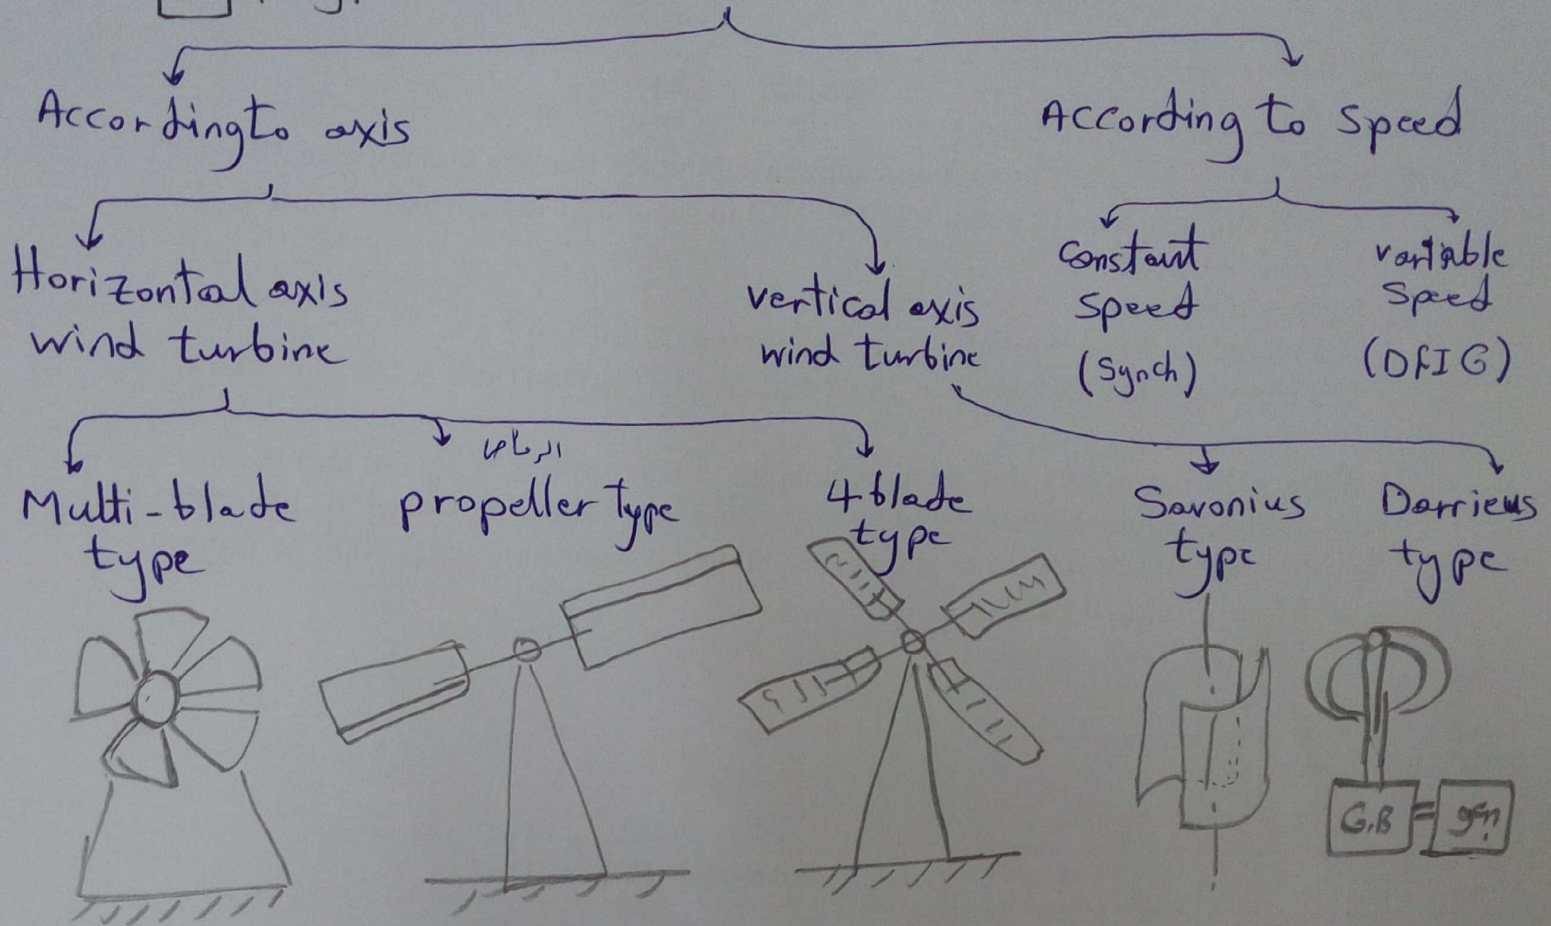 According to axis
According to speed
Horizontal axis
wind turbine
vertical axis
wind turbine
constant
speed
(Synch)
variable
speed
(DFIG)
Multi-blade
type
propeller type
4 blade
type
Savonius
type
Darrieus
type
G.B
gen